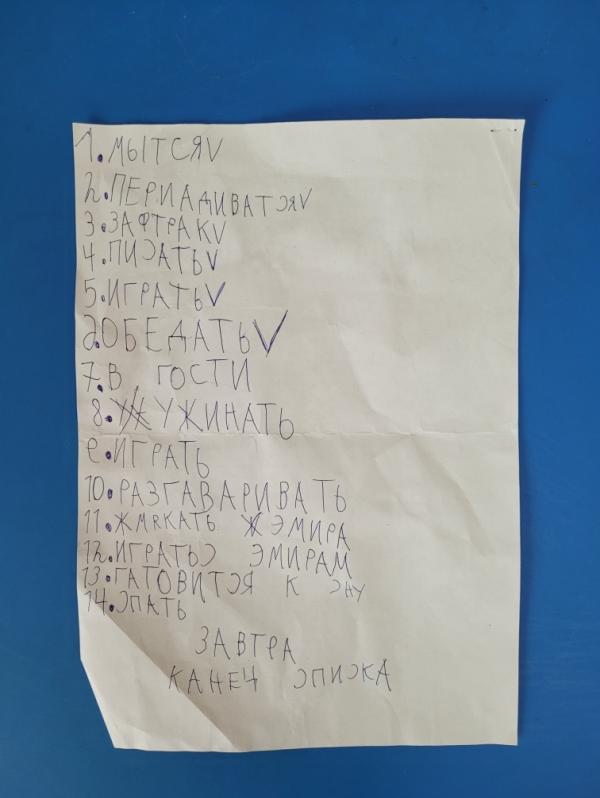 1. МЫТСЯ V
2. ПЕРИАДИВАТСЯ V
3. ЗАФТРАК V
4. ПИСАТЬ V
5. ИГРАТЬ V
6. ОБЕДАТЬ V
7. В ГОСТИ
8. УЖИНАТЬ
9. ИГРАТЬ
10. РАЗГАВАРИВАТЬ
11. ЖМЯКАТЬ ЭМИРА
12. ИГРАТЬ С ЭМИРАМ
13. ГАТОВИТСЯ К СНУ
14. СПАТЬ
ЗАВТРА
КАНЕЦ СПИСКА